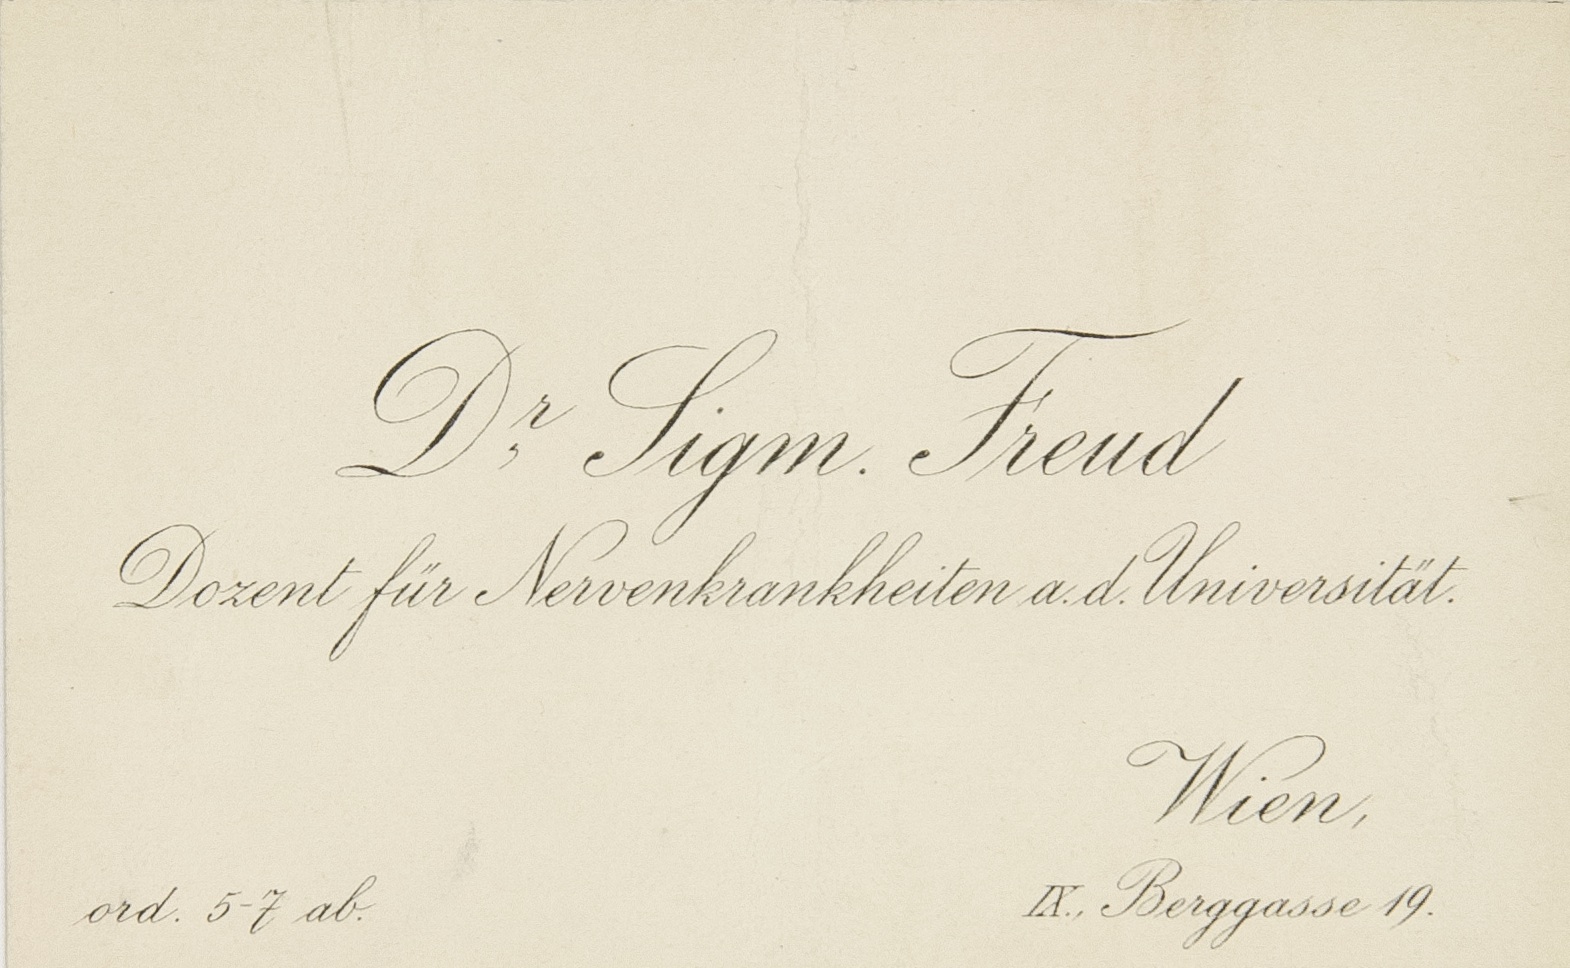 Dr. Sigm. Freud
Dozent für Nervenkrankheiten a. d. Universität.
Wien,
ord. 5-7 ab.
IX., Berggasse 19.